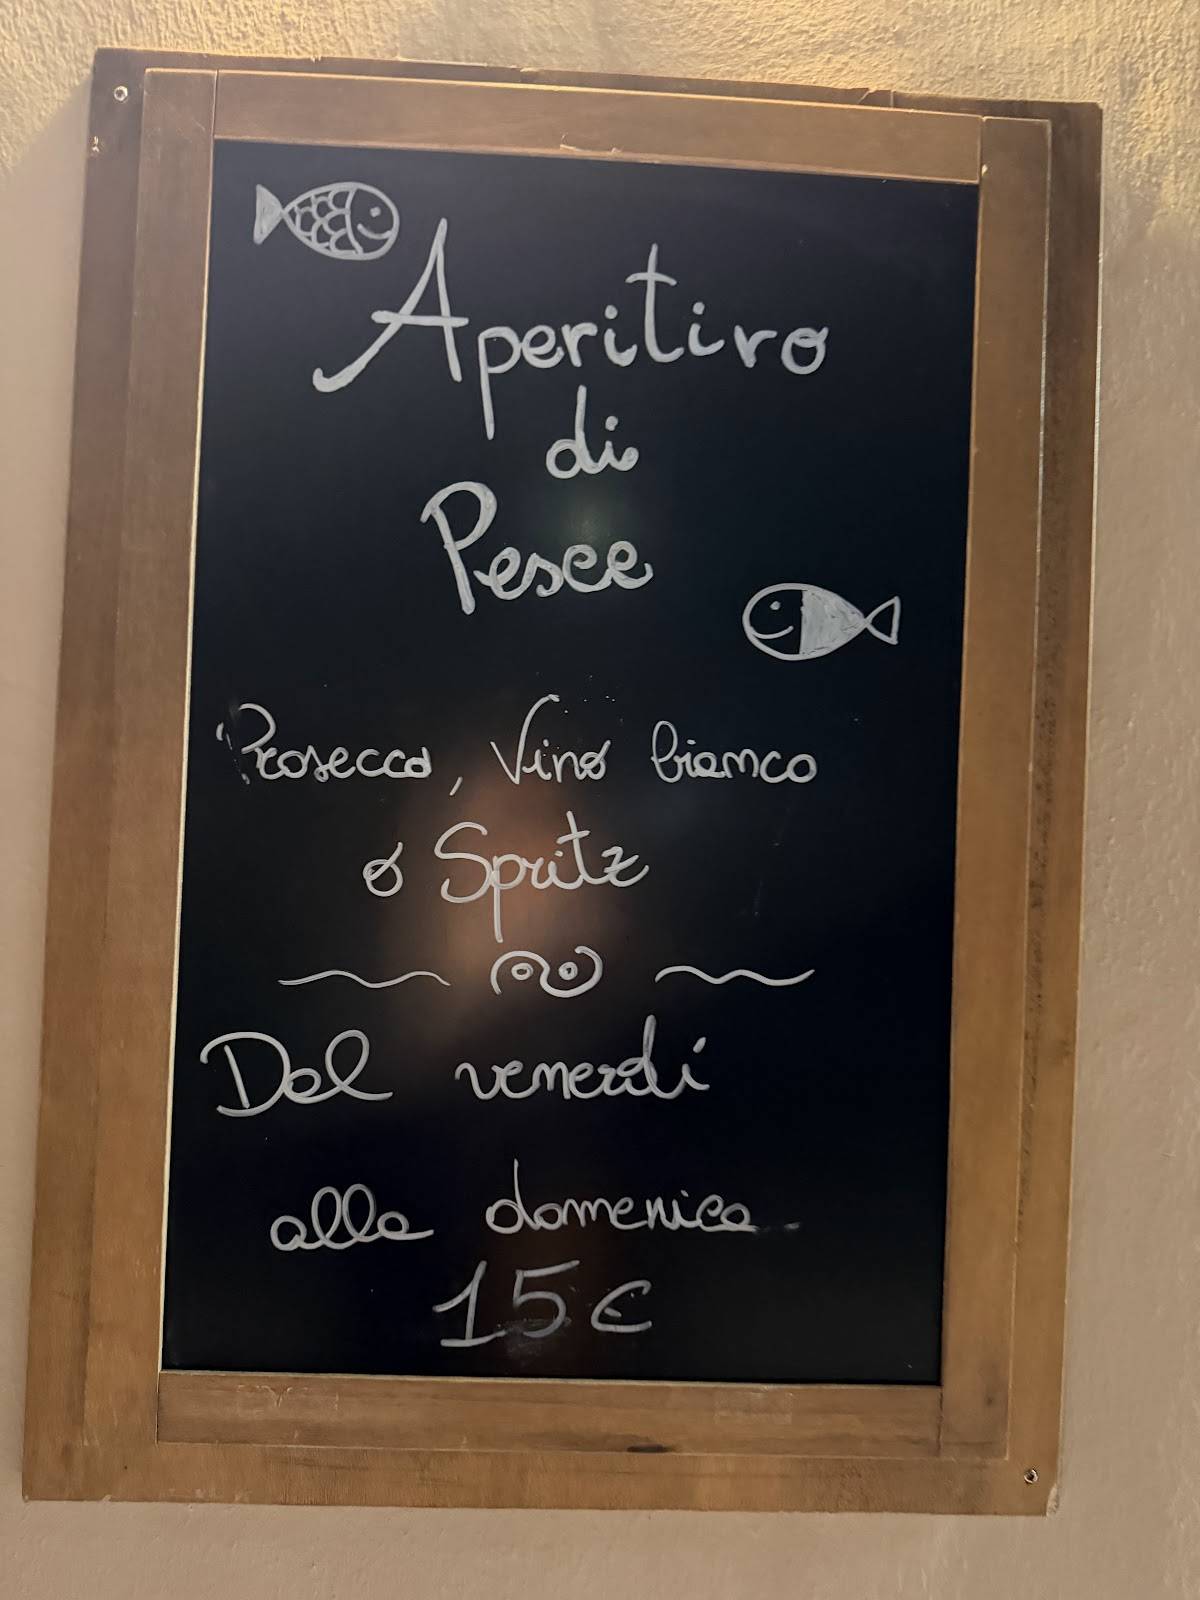 Aperitivo
di
Pesce
Prosecco, Vino bianco
o Spritz
Dal venerdi
alla domenica
15€